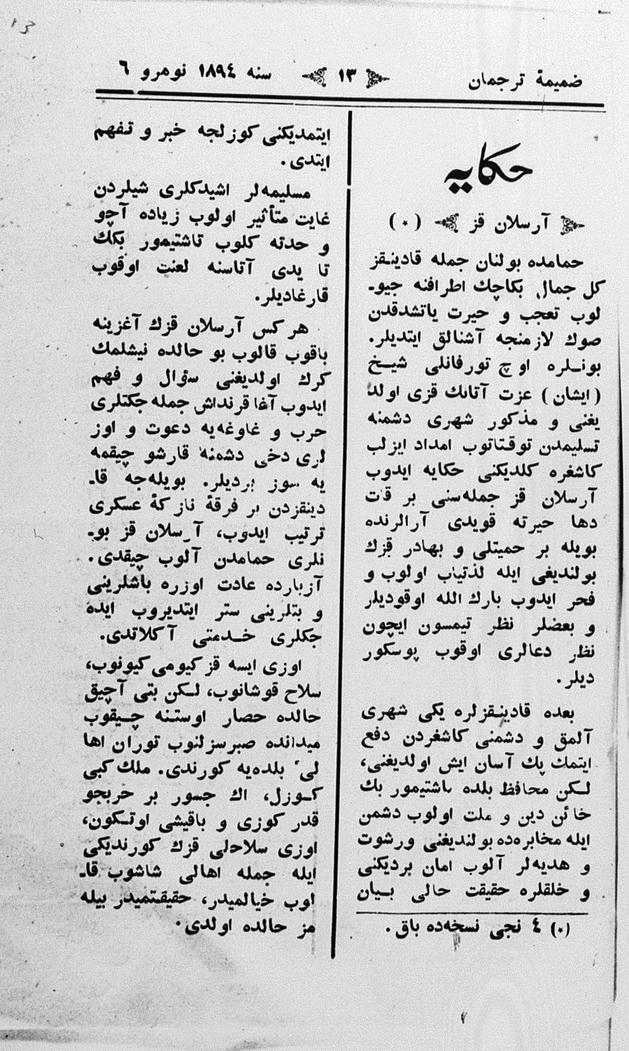 ضميمهٔ ترجمان
۱۳
سنه ۱۸۹٤ نومرو ٦
حكايه
آرسلان قز (٠)
حمامده بولنان جمله قادينقز
كل جمال بكاچك اطرافنه جيو-
لوب تعجب و حيرت ياتشدقدن
صوك لازمنجه آشنالق ايتديلر.
بونلره اوچ تورفانلى شيخ
(ايشان) عزت آتانك قزى اولد
يغنى و مذكور شهرى دشمنه
تسليمدن توقتاتوب امداد ايزلب
كاشغره كلديكنى حكايه ايدوب
آرسلان قز جمله‌سنى بر قات
دها حيرته قويدى آرالرنده
بويله بر حميتلى و بهادر قزك
بولنديغى ايله لذتياب اولوب و
فخر ايدوب بارك الله اوقوديلر
و بعضلر نظر تيمسون ايچون
نظر دعالرى اوقوب پوسكور
ديلر.
بعده قادينقزلره يكى شهرى
آلمق و دشمنى كاشغردن دفع
ايتمك پك آسان ايش اولديغنى،
لكن محافظ بلده تاشتيمور بك
خائن دين و ملت اولوب دشمن
ايله مخابره‌ده بولنديغنى ورشوت
و هديه‌لر آلوب امان برديكنى
و خلقلره حقيقت حالى بيان
(٠) ٤ نجى نسخه‌ده باق.
ايتمديكنى كوزلجه خبر و تفهم
ايتدى.
مسليمه‌لر اشيدكلرى شيلردن
غايت متأثير اولوب زياده آچو
و حدته كلوب تاشتيمور بكك
تا يدى آتاسنه لعنت اوقوب
قارغاديلر.
هركس آرسلان قزك آغزينه
باقوب قالوب بو حالده نيشلمك
كرك اولديغنى سؤال و فهم
ايدوب آغا قرنداش جمله جكتلرى
حرب و غاوغه‌يه دعوت و اوز
لرى دخى دشمنه قارشو چيقمه
يه سوز برديلر. بويله‌جه قا-
دينقزدن بر فرقهٔ نازكهٔ عسكرى
ترتيب ايدوب، آرسلان قز بو-
نلرى حمامدن آلوب چيقدى.
آزبارده عادت اوزره باشلرينى
و بتلرينى ستر ايتديروب ايده
جكلرى خدمتى آكلاتدى.
اوزى ايسه قز كيومى كيونوب،
سلاح قوشانوب، لكن بتى آچيق
حالده حصار اوستنه چيقوب
ميدانده صبرسزلنوب توران اها
لىٴ بلده‌يه كورندى. ملك كبى
كوزل، اك جسور بر حربجو
قدر كوزى و باقيشى اوتكون،
اوزى سلاحلى قزك كورنديكى
ايله جمله اهالى شاشوب قا-
لوب خيالميدر، حقيقتميدر بيله
مز حالده اولدى.